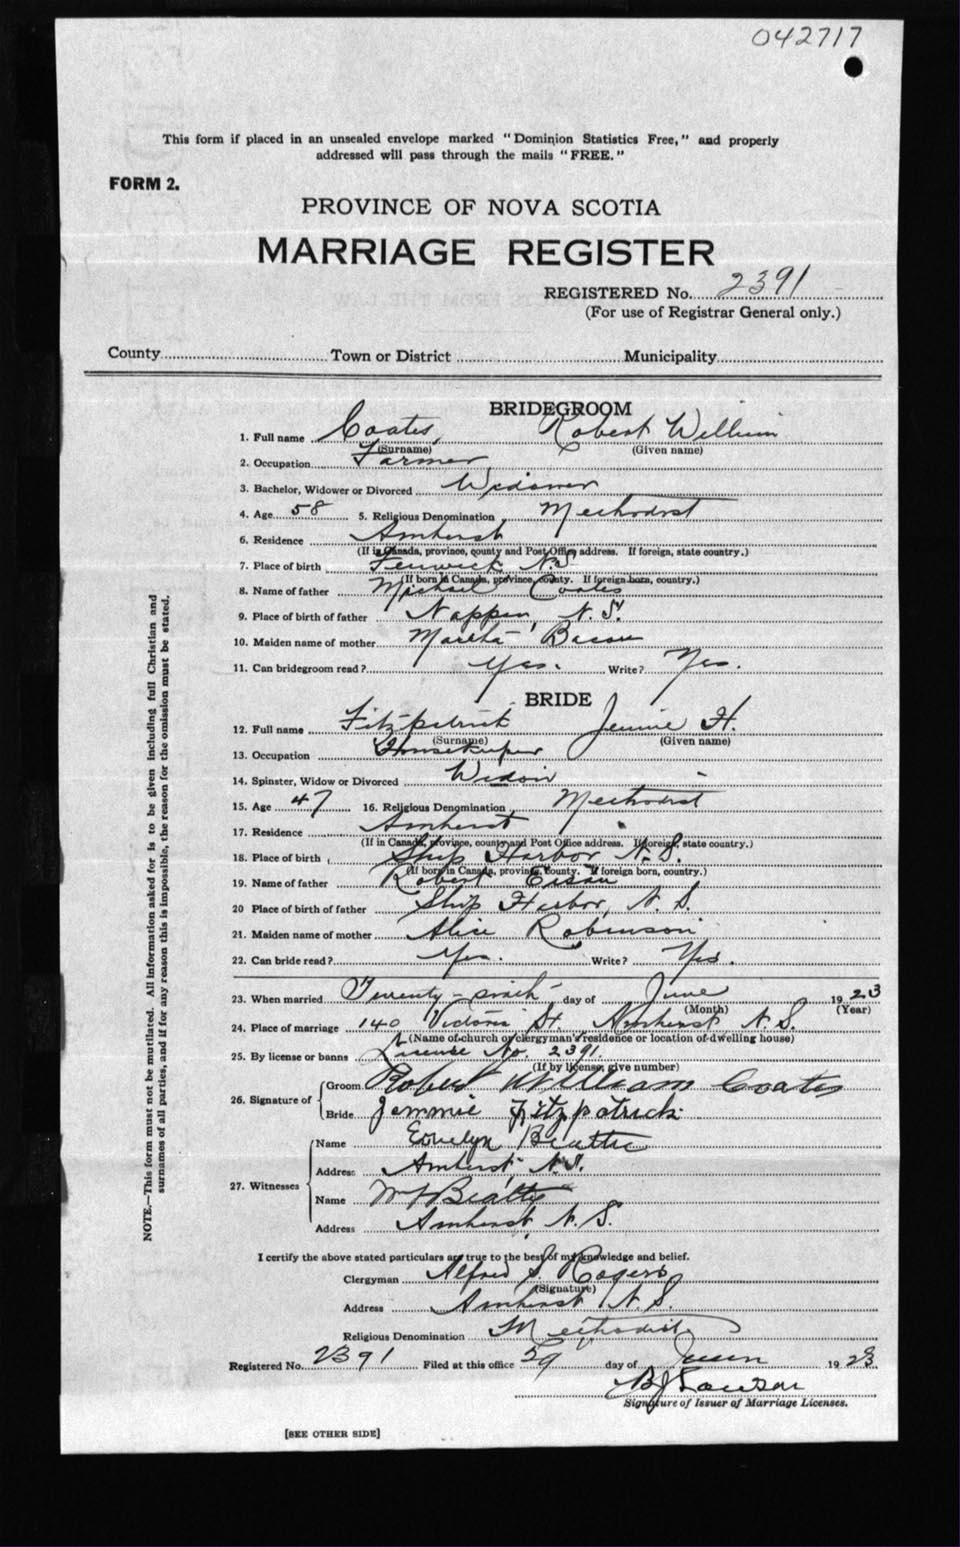 042717
This form if placed in an unsealed envelope marked "Dominion Statistics Free," and properly
addressed will pass through the mails "FREE."
FORM 2.
PROVINCE OF NOVA SCOTIA
MARRIAGE REGISTER
REGISTERED No. 2391
(For use of Registrar General only.)
County Town or District Municipality
BRIDEGROOM
1. Full name Coates, Robert William
(Surname) (Given name)
2. Occupation Farmer
3. Bachelor, Widower or Divorced Widower
4. Age 58 5. Religious Denomination Methodist
6. Residence Amherst
(If in Canada, province, county and Post Office address. If foreign, state country.)
7. Place of birth Fenwick N.S
(If born in Canada, province, county. If foreign born, country.)
8. Name of father Michael Coates
9. Place of birth of father Nappan, N.S.
10. Maiden name of mother Martha Bacon
11. Can bridegroom read? Yes. Write? Yes.
BRIDE
12. Full name Fitzpatrick Jennie H.
(Surname) (Given name)
13. Occupation Housekeeper
14. Spinster, Widow or Divorced Widow
15. Age 47 16. Religious Denomination Methodist
17. Residence Amherst
(If in Canada, province, county and Post Office address. If foreign, state country.)
18. Place of birth Ship Harbor N.S.
(If born in Canada, province, county. If foreign born, country.)
19. Name of father Robert
20 Place of birth of father Ship Harbor, N.S.
21. Maiden name of mother Alice Robinson
22. Can bride read? Yes. Write? Yes.
23. When married Twenty-sixth day of June 1923
(Month) (Year)
24. Place of marriage 140 Victoria St. Amherst N.S.
(Name of church or clergyman's residence or location of dwelling house)
25. By license or banns License No. 2391.
(If by license, give number)
26. Signature of Groom Robert William Coates
Bride Jennie Fitzpatrick
27. Witnesses
Name Evelyn Beattie
Address Amherst, N.S.
Name Beatty
Address Amherst, N.S.
I certify the above stated particulars are true to the best of my knowledge and belief.
Clergyman Alfred S. Rogers
(Signature)
Address Amherst N.S.
Religious Denomination Methodist
Registered No. 2391 Filed at this office day of 1923
Signature of Issuer of Marriage Licenses.
[SEE OTHER SIDE]
NOTE.—This form must not be mutilated. All information asked for is to be given including full Christian and
surnames of all parties, and if for any reason this is impossible, the reason for the omission must be stated.